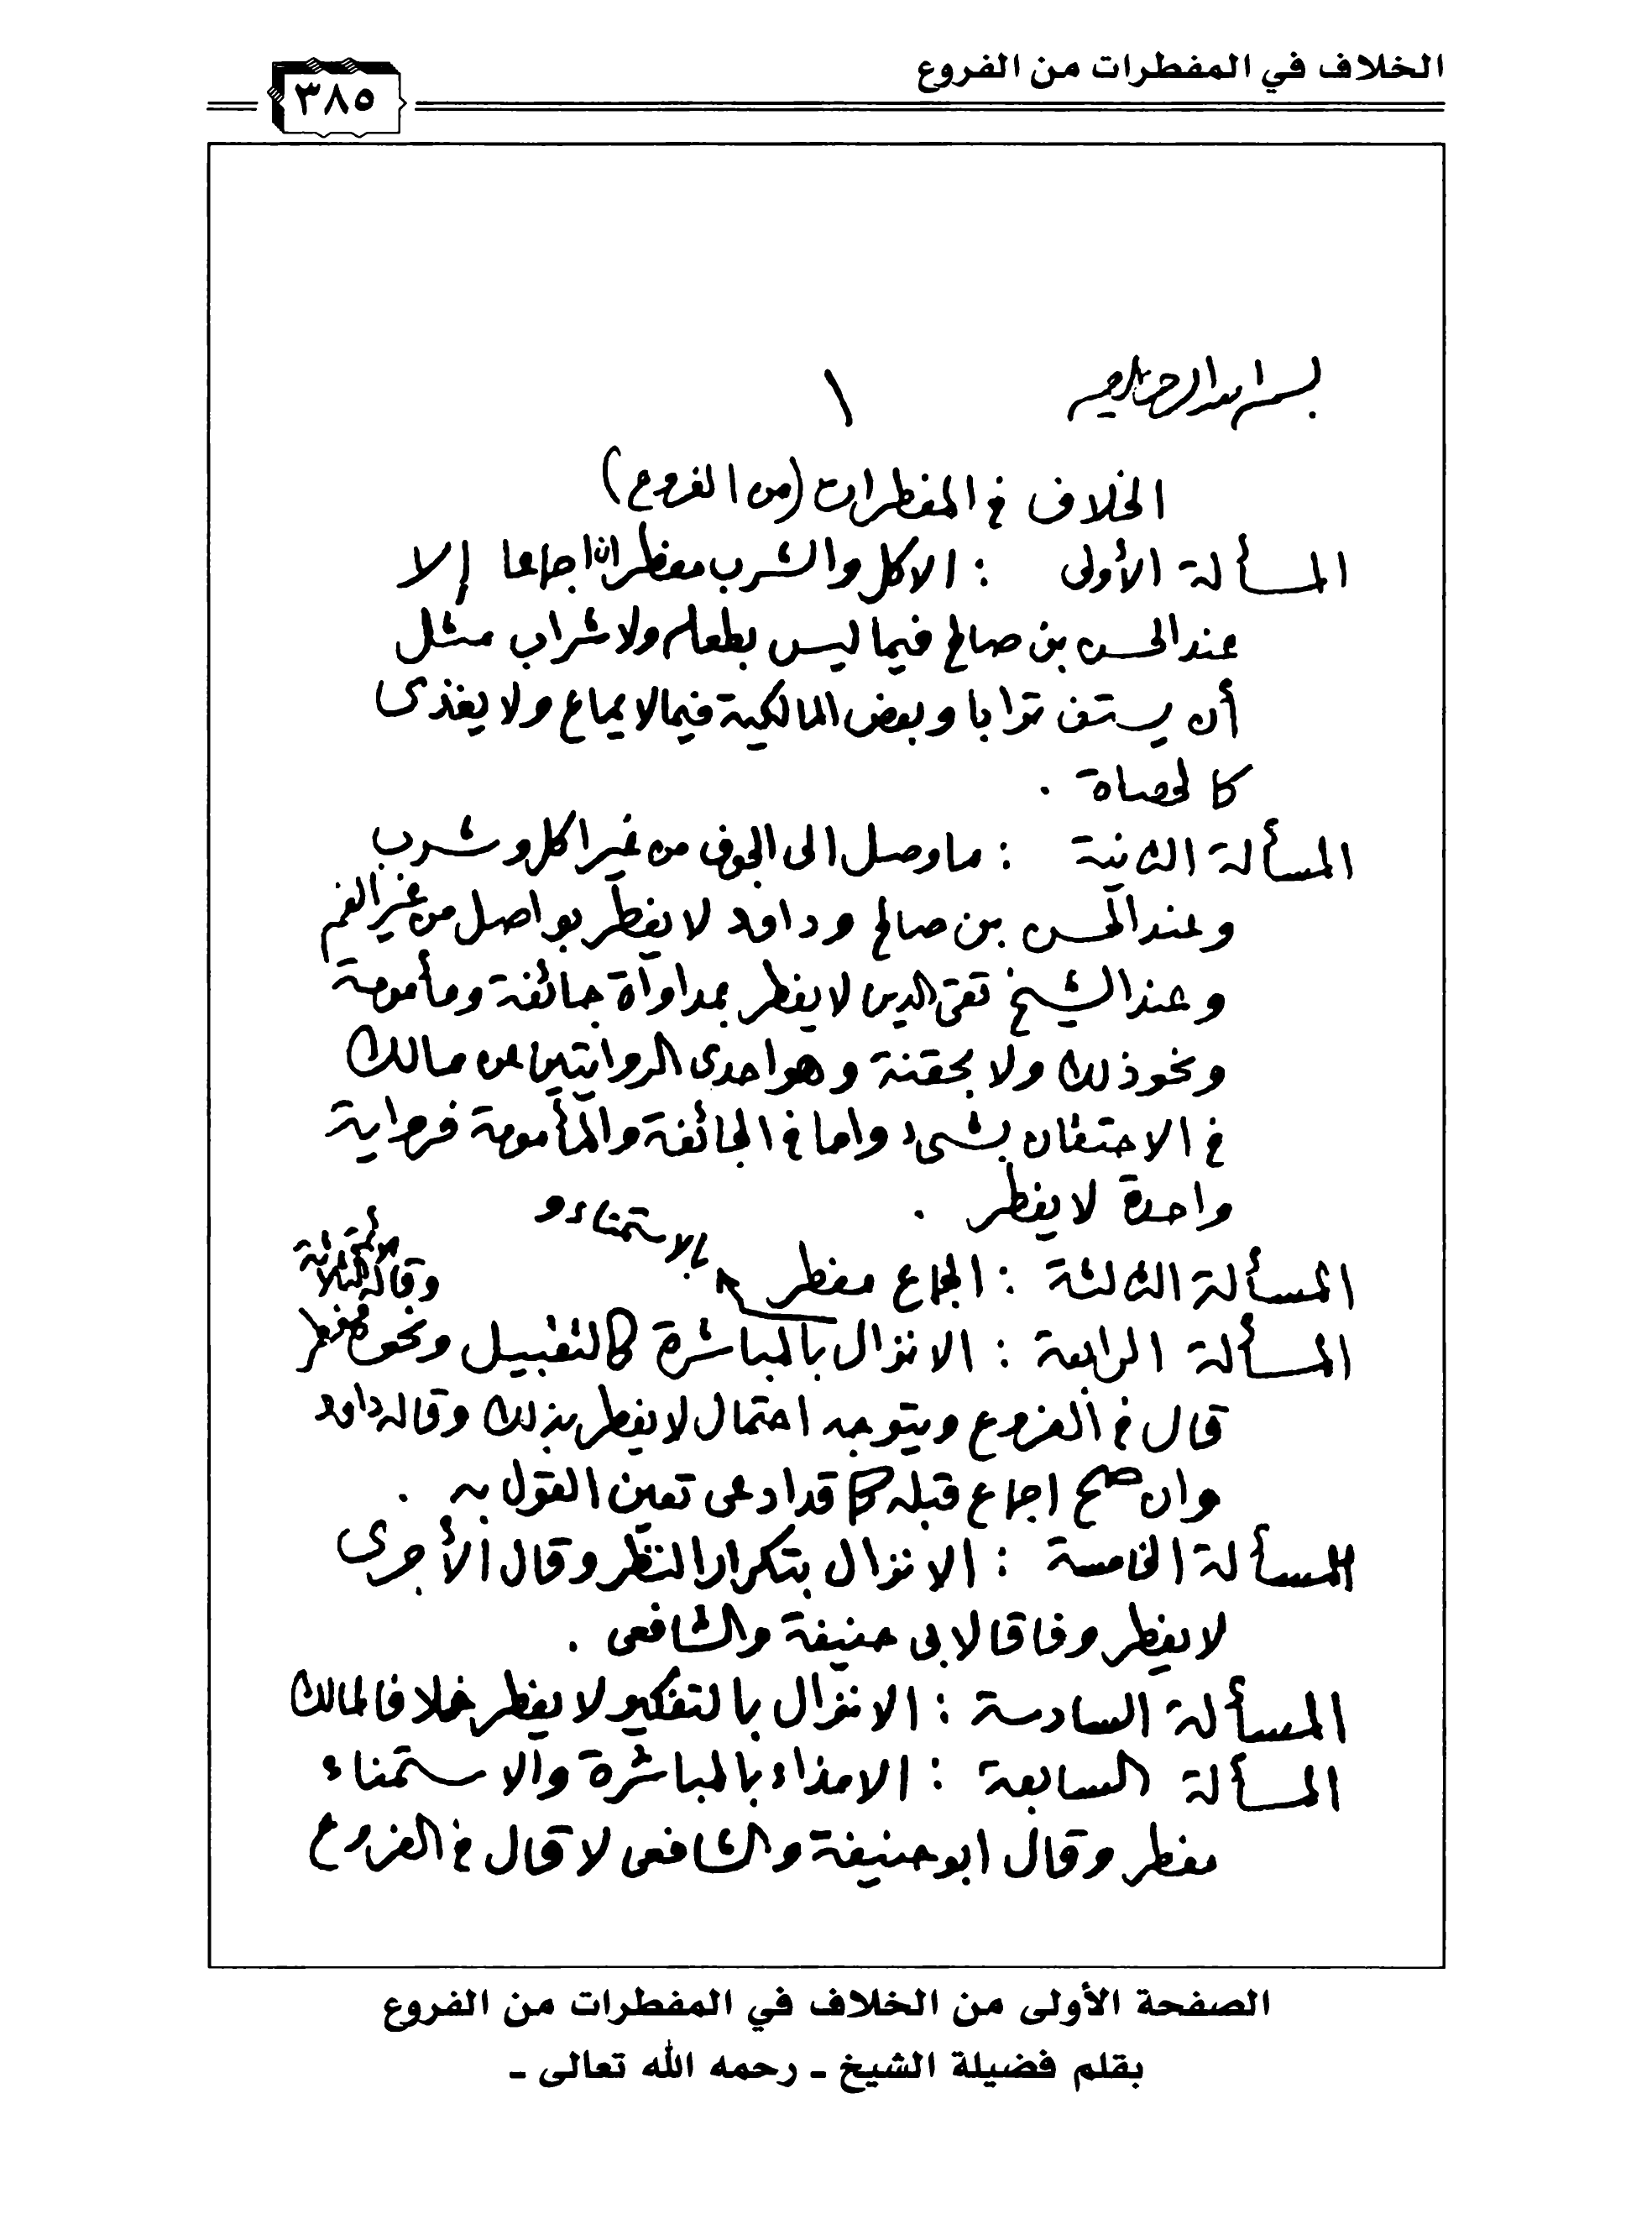 الخلاف في المفطرات من الفروع
٣٨٥
بسم الله الرحمن الرحيم
١
الخلاف في المفطرات (من الفروع)
المسألة الأولى : الاكل والشرب مفطران اجماعا إلا
عند الحسن بن صالح فيما ليس بطعام ولا شراب مثل
أن يستف ترابا وبعض المالكية فيما لا يماع ولا يغذى
كالحصاة .
المسألة الثانية : ما وصل الى الجوف من غير اكل وشرب
وعند الحسن بن صالح وداود لا يفطر بواصل من غير الفم
وعند الشيخ تقي الدين لا يفطر بمداواة جائفة ومأمومة
ونحو ذلك ولا بحقنة وهو احدى الروايتين عن مالك
في الاحتقان بشيء واما في الجائفة والمأمومة فرواية
واحدة لا يفطر .
المسألة الثالثة : الجماع مفطر
بالاستمناء و
المسألة الرابعة : الانزال بالمباشرة كالتقبيل ونحوه مفطر
وقاله الأئمة الثلاثة
قال في الفروع ويتوجه احتمال لا يفطر بذلك وقاله داود
وان صح اجماع قبله كما قد ادعى تعين القول به .
المسألة الخامسة : الانزال بتكرار النظر وقال الأجرى
لا يفطر وفاقا لابى حنيفة والشافعى .
المسألة السادسة : الانزال بالتفكير لا يفطر خلافا لمالك
المسألة السابعة : الامذاء بالمباشرة والاستمناء
مفطر وقال ابو حنيفة والشافعى لا قال في الفروع
الصفحة الأولى من الخلاف في المفطرات من الفروع
بقلم فضيلة الشيخ ـ رحمه الله تعالى ـ